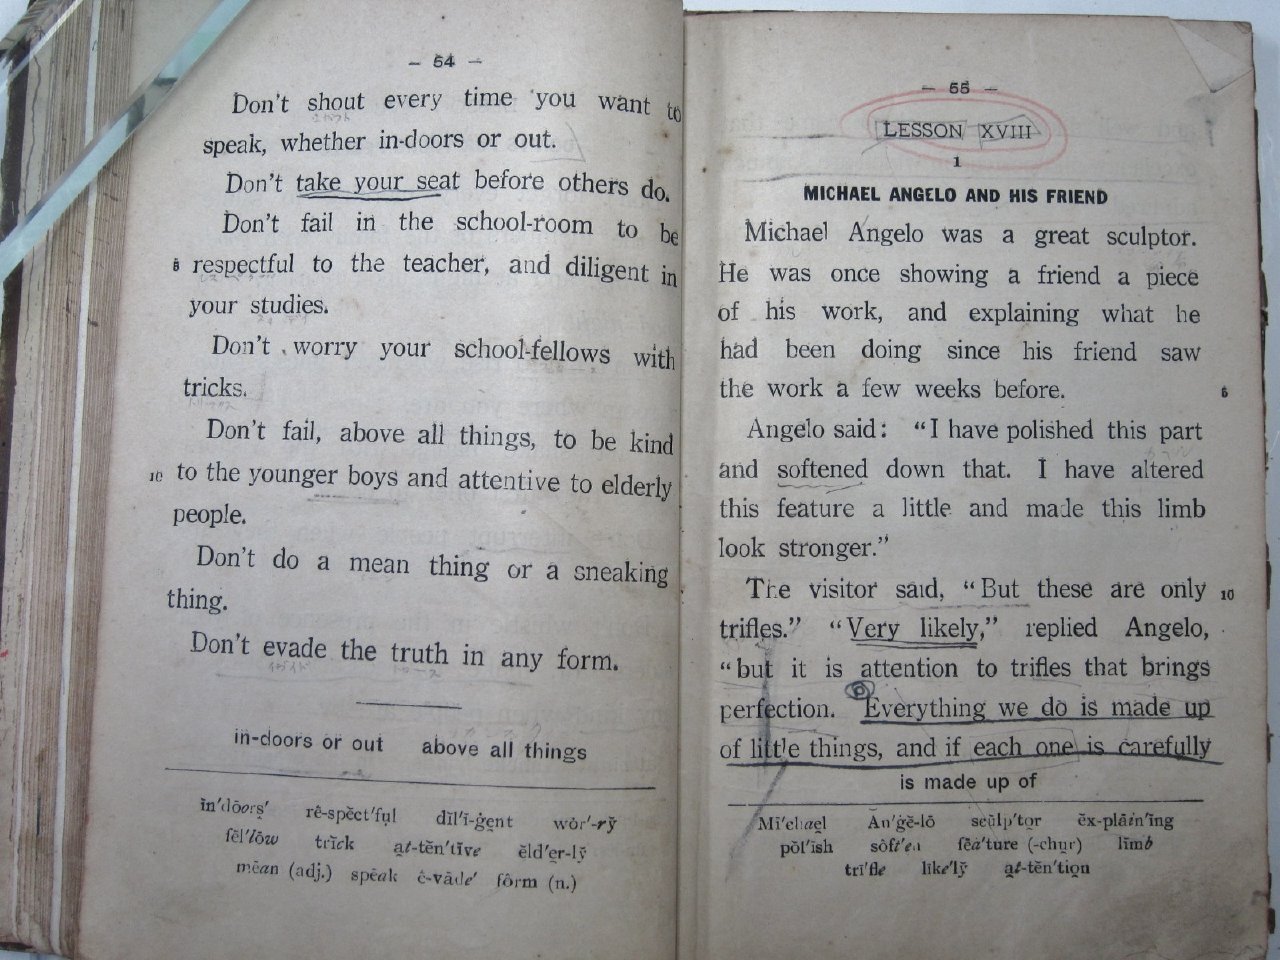 - 54 -
Don't shout every time you want to
speak, whether in-doors or out.
Don't take your seat before others do.
Don't fail in the school-room to be
5 respectful to the teacher, and diligent in
your studies.
Don't worry your school-fellows with
tricks.
Don't fail, above all things, to be kind
10 to the younger boys and attentive to elderly
people.
Don't do a mean thing or a sneaking
thing.
Don't evade the truth in any form.
in-doors or out above all things
ĭn′dōorș′ rê-spĕct′fụl dĭl′ĭ-ġęnt wòr′-rў
fĕl′lōw trĭck ạt-tĕn′tĭve ĕld′ẽr-lў
mēan (adj.) spēak ê-vāde′ fôrm (n.)
- 55 -
LESSON XVIII
1
MICHAEL ANGELO AND HIS FRIEND
Michael Angelo was a great sculptor.
He was once showing a friend a piece
of his work, and explaining what he
had been doing since his friend saw
the work a few weeks before. 5
Angelo said: "I have polished this part
and softened down that. I have altered
this feature a little and made this limb
look stronger."
The visitor said, "But these are only 10
trifles." "Very likely," replied Angelo,
"but it is attention to trifles that brings
perfection. Everything we do is made up
of little things, and if each one is carefully
is made up of
Mī′chaęl Ăn′ġĕ-lō scŭlp′tọr ĕx-plāin′ĭng
pŏl′ĭsh sôft′en fēa′ture (-chụr) lĭmb
trī′fle līke′lў ạt-tĕn′tiọn